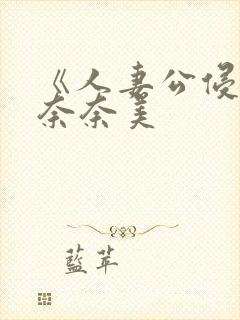 《人妻公侵
奈奈美
藍苹